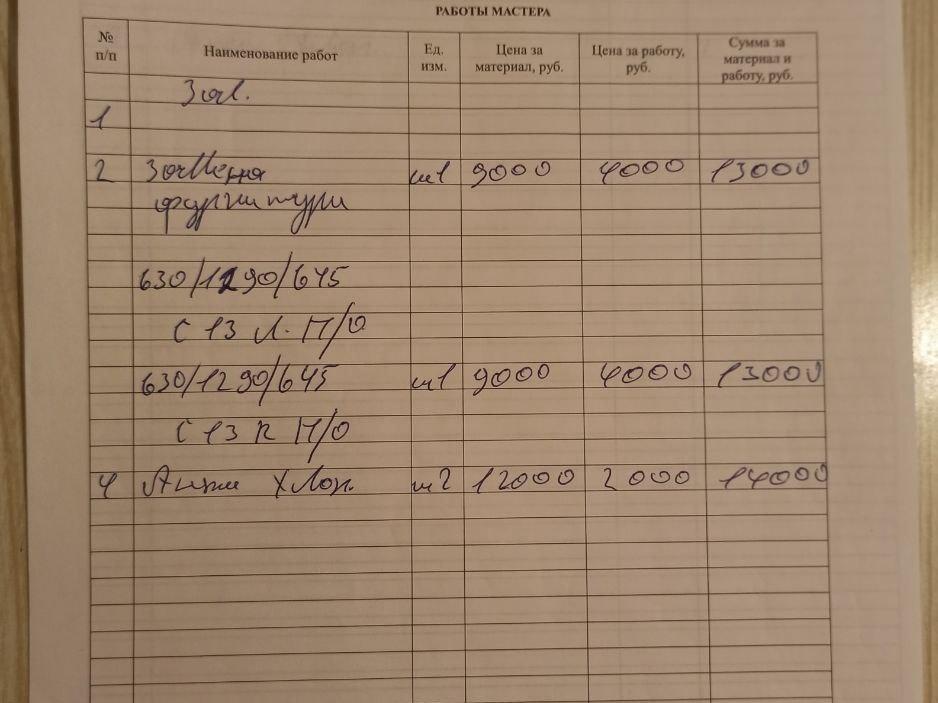 РАБОТЫ МАСТЕРА
№ п/п Наименование работ Ед. изм. Цена за материал, руб. Цена за работу, руб. Сумма за материал и работу, руб.
1
2 9000 4000 13000
фурнитуры
630/1290/645
С 13 Л. П/О
630/1290/645 9000 4000 13000
С 13 R П/О
4 12000 2000 14000